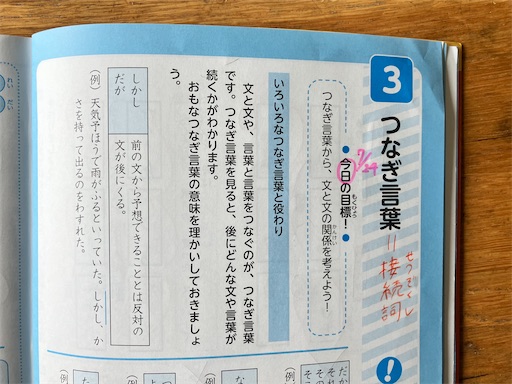 3
つなぎ言葉
=接続詞
せつぞくし
7/24
今日の目標!
もくひょう
つなぎ言葉から、文と文の関係を考えよう!
かんけい
いろいろなつなぎ言葉と役わり
文と文や、言葉と言葉をつなぐのが、つなぎ言葉
です。つなぎ言葉を見ると、後にどんな文や言葉が
続くかがわかります。
おもなつなぎ言葉の意味を理かいしておきましょ
う。
しかし
だが
前の文から予想できることとは反対の
文が後にくる。
(例)天気予ほうで雨がふるといっていた。しかし、か
さを持って出るのをわすれた。
(例)
(例)